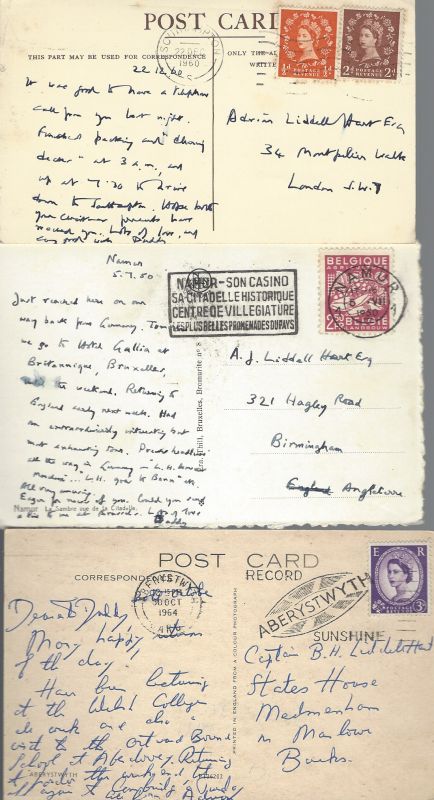 POST CARD
THIS PART MAY BE USED FOR CORRESPONDENCE
ONLY THE
WRITTEN
SOUTHAMPTON
22 DEC
1960
POSTAGE REVENUE
½d ½d
POSTAGE REVENUE
2d 2d
22.12.60
It was good to have a telephone
call from you last night.
Finished packing and "clearing
decks" at 3 a.m., and
up at 7.30 to drive
down to Southampton. Hope both
your Christmas presents have
reached you. Lots of love, and
Daddy
Adrian Liddell Hart Esq
34 Montpelier Walk
London S.W.7
Namur
5.7.50
Just reached here on our
way back from Germany. Tomorrow
we go to Hotel Gallia et
Britannique, Bruxelles,
until the weekend. Returning to
England early next week. Had
an extraordinarily interesting but
most exhausting tour.
all the way in Germany
All very amusing.
Eager for news of you. Could you send
a line to me at Brussels. Lots of love
Daddy
Namur La Sambre vue de la Citadelle.
Bruxelles, Bromurite n° 8
NAMUR - SON CASINO
SA CITADELLE HISTORIQUE
CENTRE DE VILLEGIATURE
LES PLUS BELLES PROMENADES DU PAYS
BELGIQUE
2.50
BELGIE
LANDBOUW
NAMUR
A.J. Liddell Hart Esq
321 Hagley Road
Birmingham
England Angleterre
POST CARD
CORRESPONDENCE
RECORD
ABERYSTWYTH
SUNSHINE
ABERYSTWYTH
30 OCT
1964
E R
3D
30th October
Dearest Daddy
Many happy returns
of the day!
Have been lecturing
at the Welsh College
visit to the Outward Bound
School at Aberdovey. Returning
Adrian
ABERYSTWYTH
PRINTED IN ENGLAND FROM A COLOUR PHOTOGRAPH
Captain B.H. Liddell Hart
States House
Medmenham
nr Marlow
Bucks.